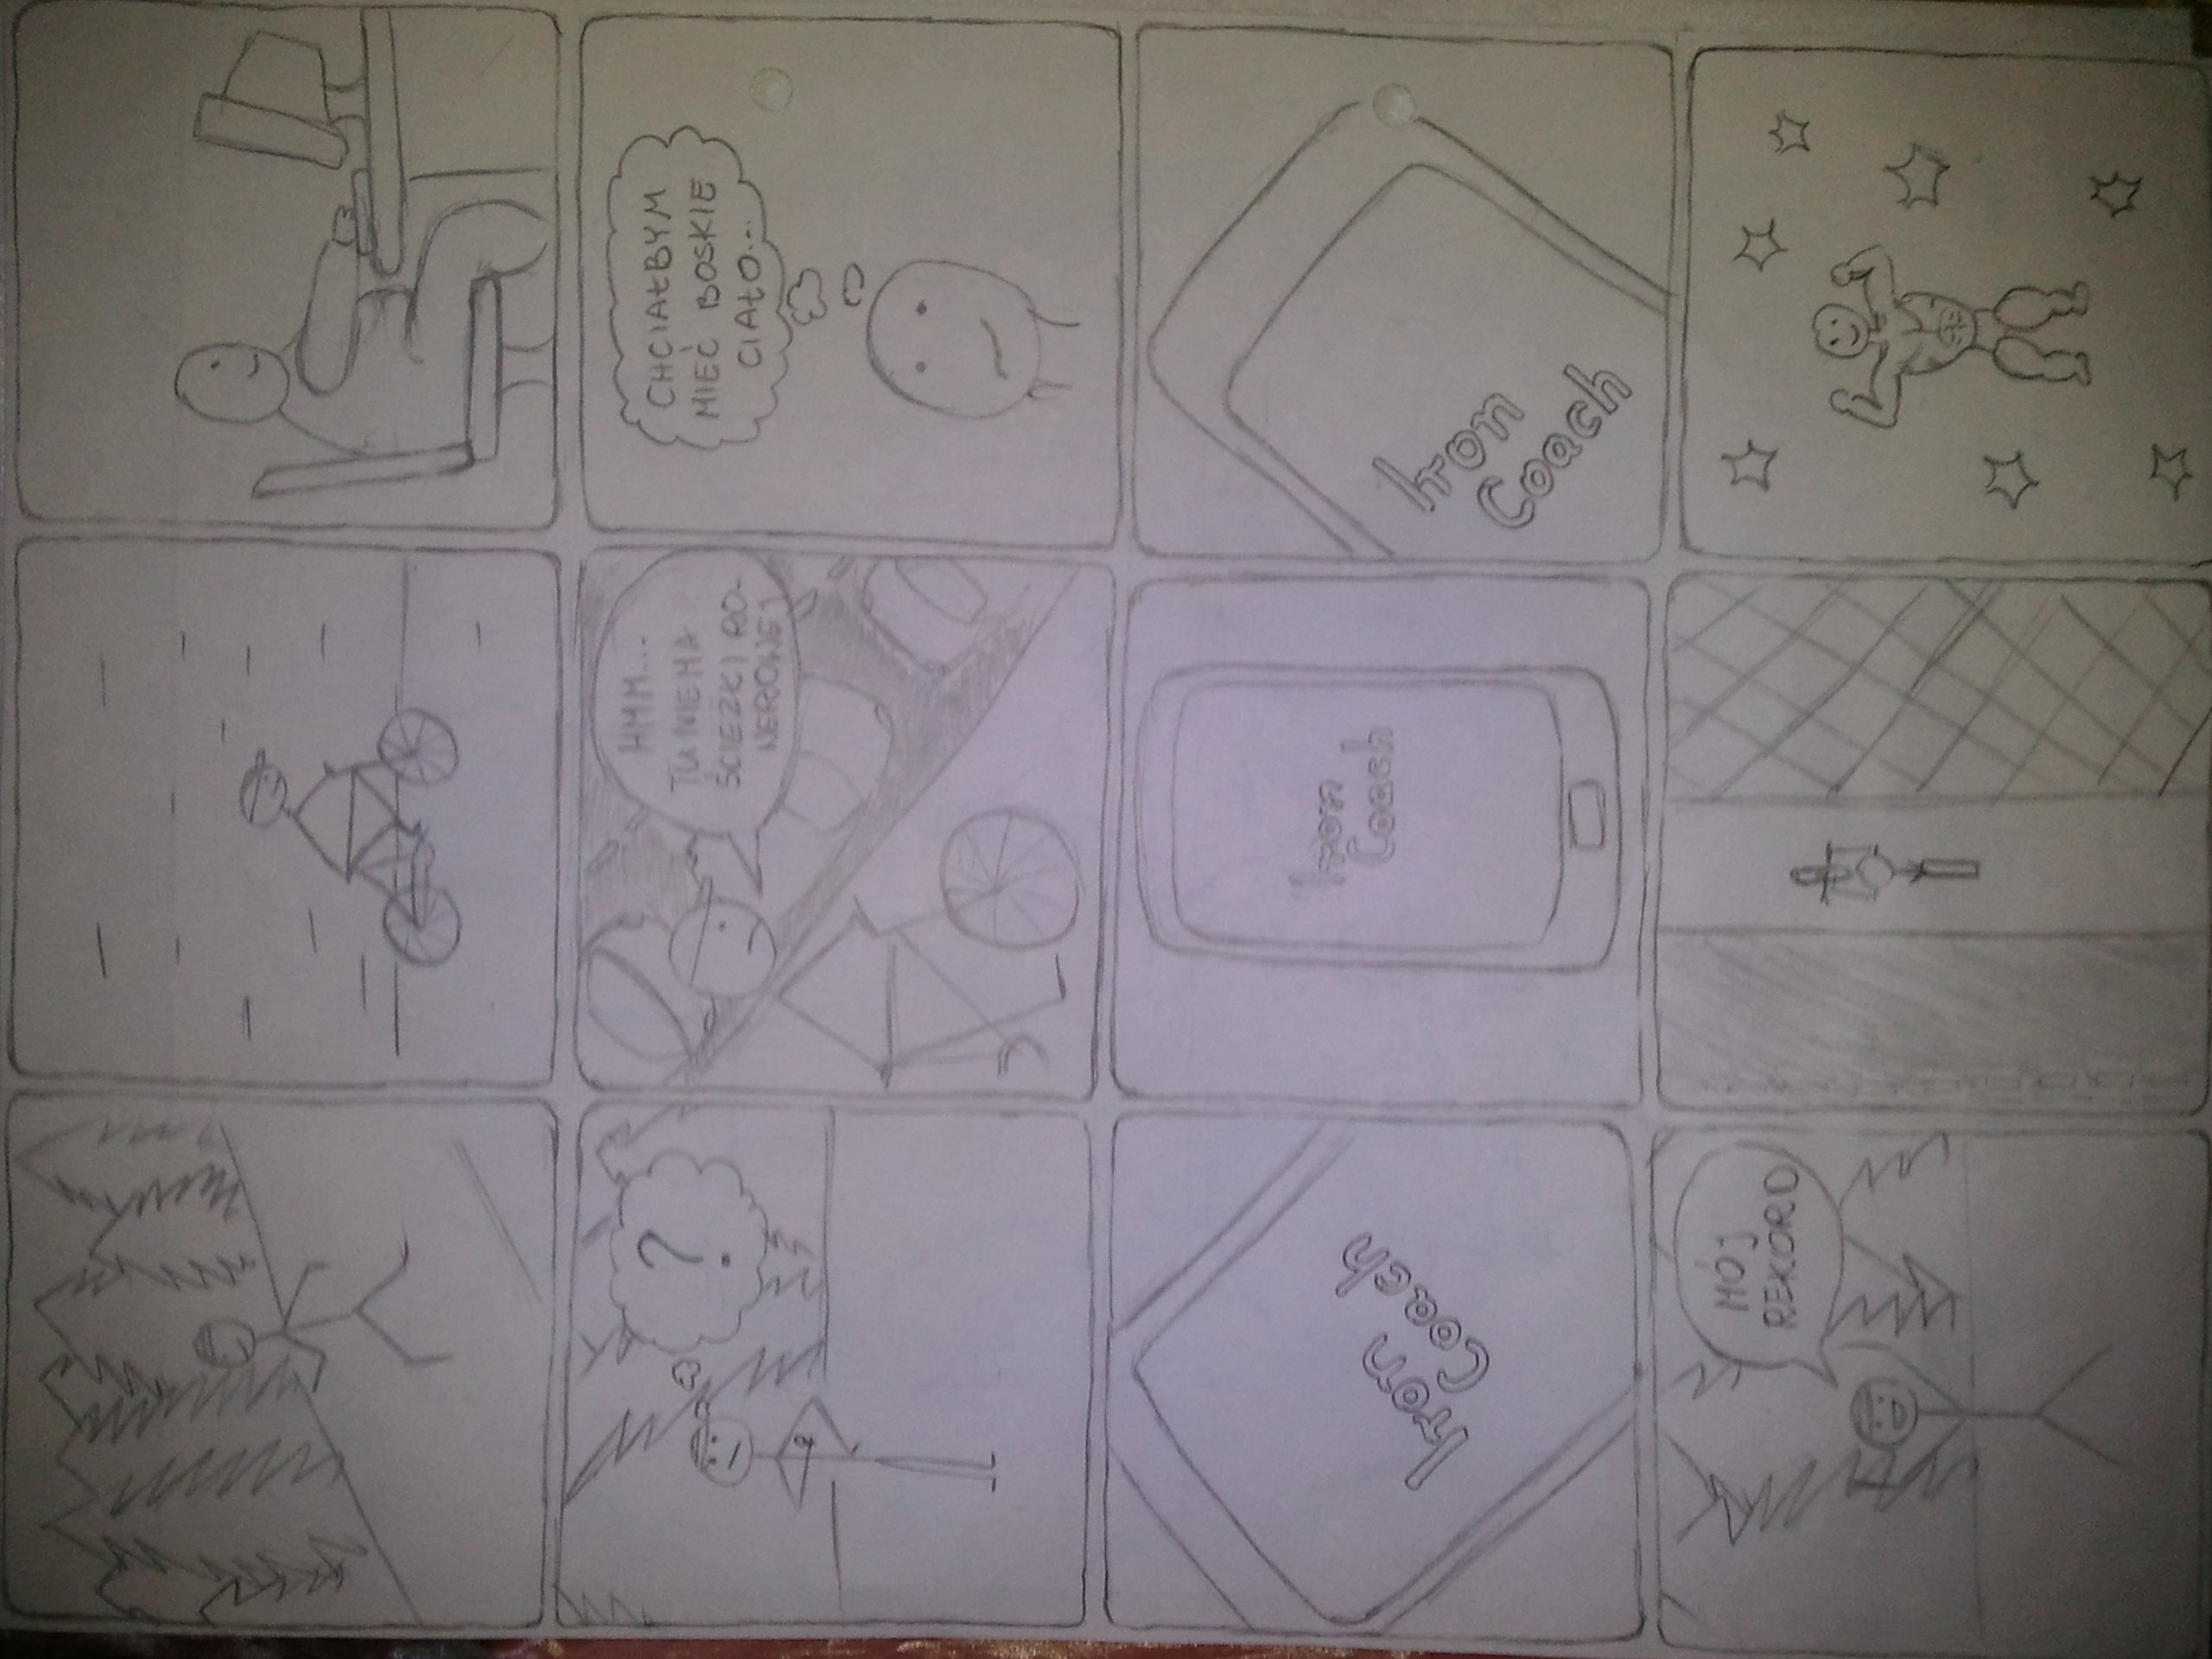 ?
HMM...
TU NIE MA
ŚCIEŻKI RO-
WEROWEJ
CHCIAŁBYM
MIEĆ BOSKIE
CIAŁO...
Iron
Coach
Iron
Coach
Iron
Coach
MÓJ
REKORD